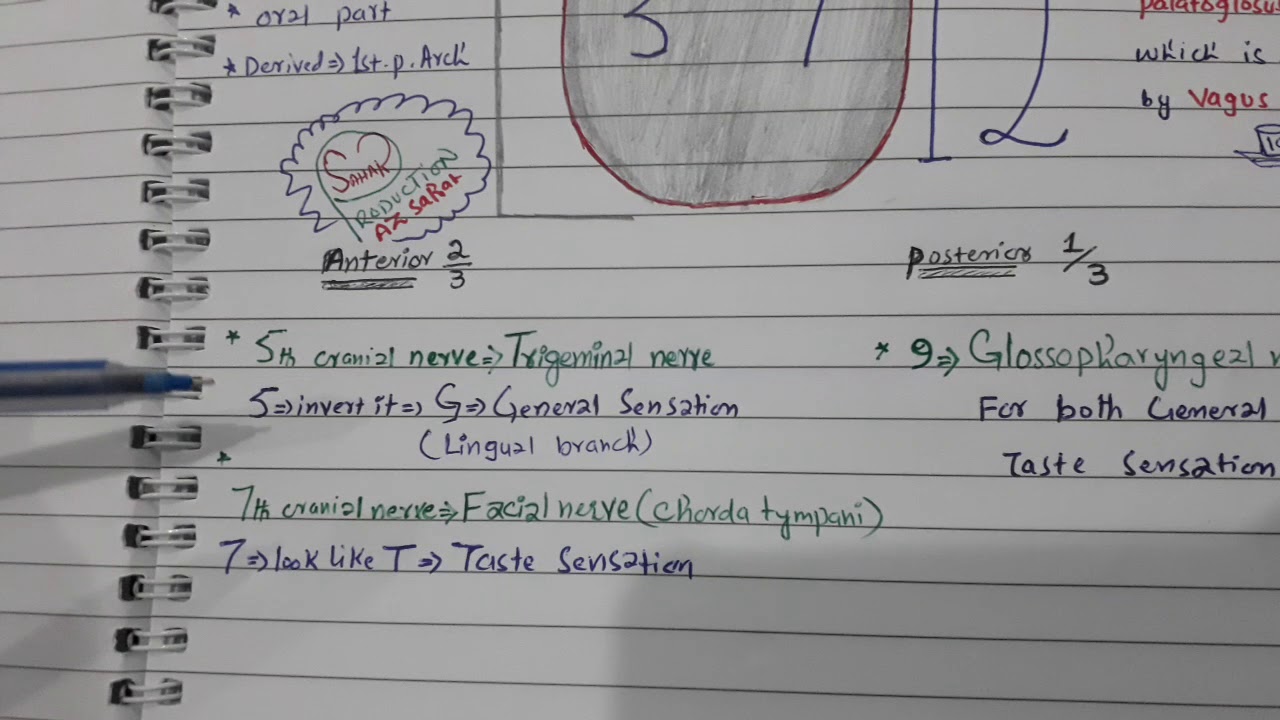 * oral part
* Derived⇒ 1st.p.Arch
5 7
12
palatoglosus
which is
by Vagus
SAHAK
RODUCTION
AZ SaRat
Anterior 2/3
Posterior 1/3
* 5th cranial nerve⇒ Trigeminal nerve
5⇒invert it⇒ G⇒ General Sensation
(Lingual branch)
*
7th cranial nerve⇒ Facial nerve (chorda tympani)
7⇒look like T⇒ Taste Sensation
* 9⇒ Glossopharyngeal n
For both General
Taste Sensation